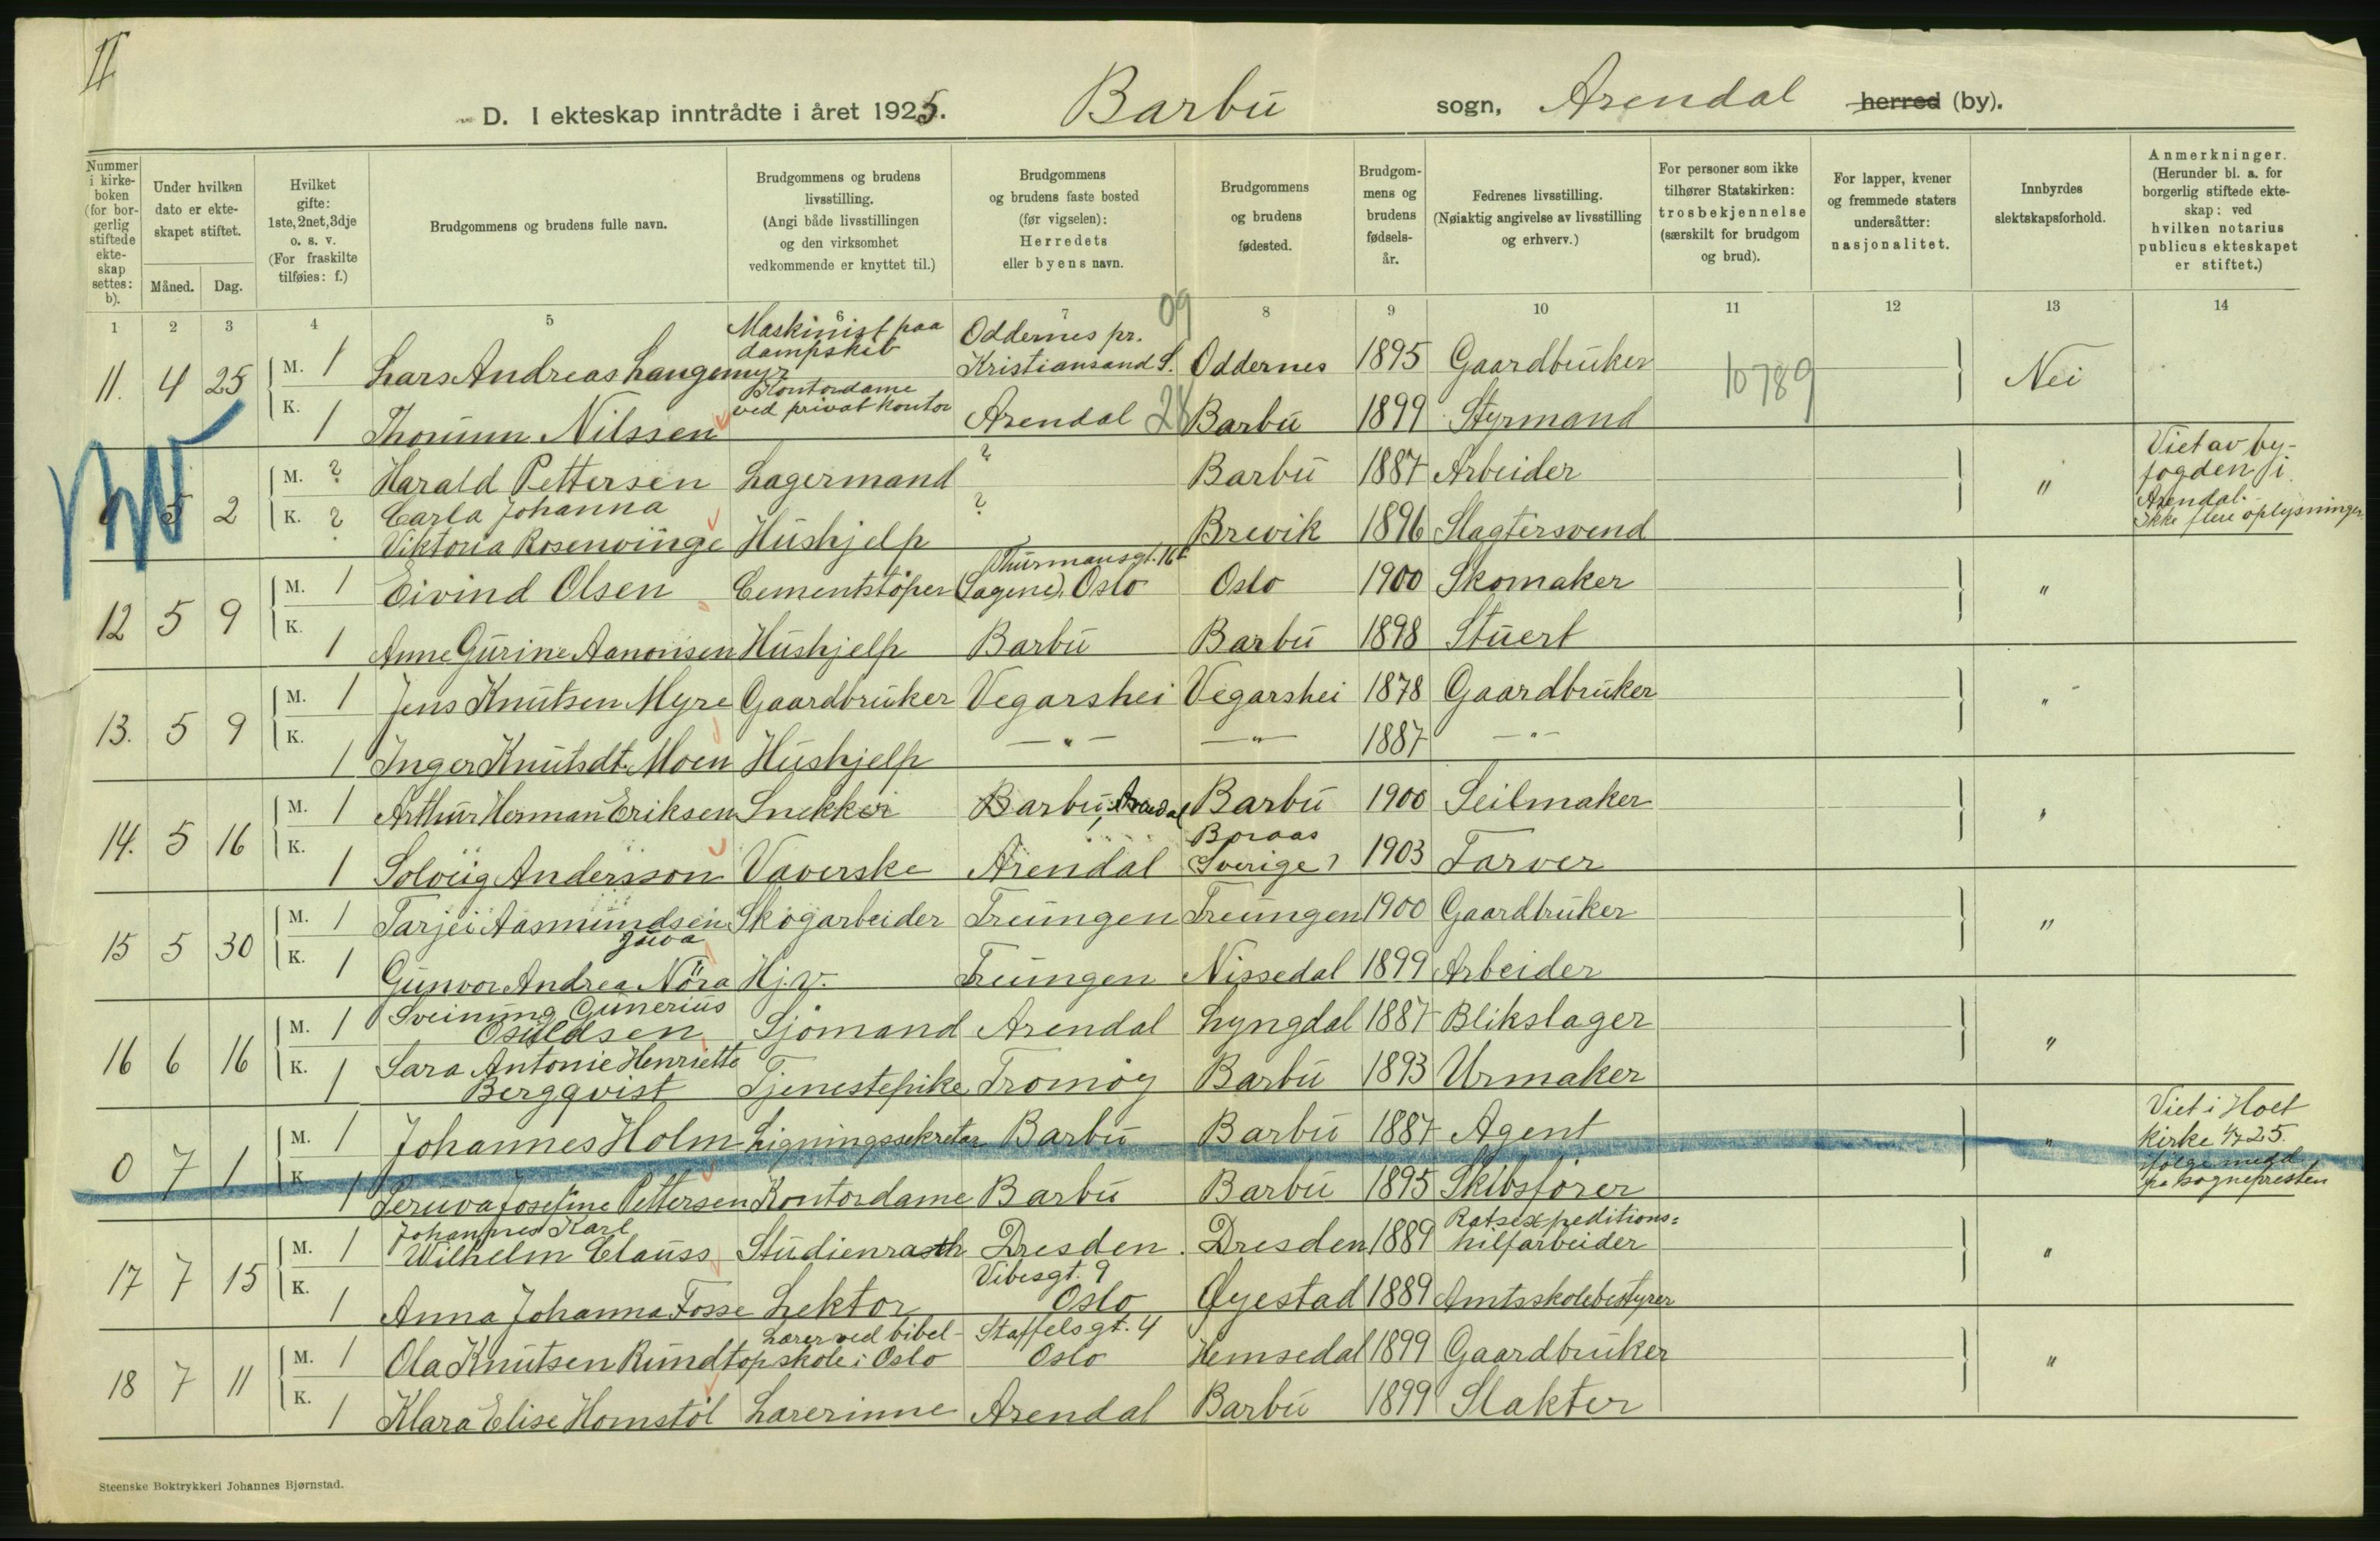 II
D. I ekteskap inntrådte i året 1925. Barbu sogn, Arendal herred (by).
Nummer i kirkeboken (for borgerlig stiftede ekteskap settes: b).
Under hvilken dato er ekteskapet stiftet.
Måned. Dag.
Hvilket gifte: 1ste, 2net, 3dje o. s. v. (For fraskilte tilføies: f.)
Brudgommens og brudens fulle navn.
Brudgommens og brudens livsstilling. (Angi både livsstillingen og den virksomhet vedkommende er knyttet til.)
Brudgommens og brudens faste bosted (før vigselen): Herredets eller byens navn.
Brudgommens og brudens fødested.
Brudgommens og brudens fødselsår.
Fedrenes livsstilling. (Nøiaktig angivelse av livsstilling og erhverv.)
For personer som ikke tilhører Statskirken: trosbekjennelse (særskilt for brudgom og brud).
For lapper, kvener og fremmede staters undersåtter: nasjonalitet.
Innbyrdes slektskapsforhold.
Anmerkninger. (Herunder bl. a. for borgerlig stiftede ekteskap: ved hvilken notarius publicus ekteskapet er stiftet.)
1 2 3 4 5 6 7 8 9 10 11 12 13 14
09
11. 4 25 M. 1 Lars Andreas Langemyr Maskinist paa dampskib Oddernes pr. Kristiansand S. Oddernes 1895 Gaardbruker 10789 Nei
K. 1 Thorunn Nilssen Kontordame ved privat kontor Arendal 28 Barbu 1899 Styrmand
5 2 M. ? Harald Pettersen Lagermand ? Barbu 1887 Arbeider " Viet av byfogden i Arendal. Ikke flere oplysninger
K. ? Carla Johanna Viktoria Rosenvinge Hushjelp ? Brevik 1896 Slagtersvend
12 5 9 M. 1 Eivind Olsen Cementstøper Thurmansgt. 16 (Sagene), Oslo Oslo 1900 Skomaker "
K. 1 Anne Gurine Aanonsen Hushjelp Barbu Barbu 1898 Stuert
13. 5 9 M. 1 Jens Knutsen Myre Gaardbruker Vegarshei Vegarshei 1878 Gaardbruker "
K. 1 Inger Knutsdt. Moen Hushjelp — " — — " — 1887 — " —
14. 5 16 M. 1 Arthur Herman Eriksen Snekker Barbu, Arendal Barbu 1900 Seilmaker "
K. 1 Solveig Andersson Væverske Arendal Boraas Sverige 1903 Farver
15 5 30 M. 1 Tarjei Aasmundsen Skogarbeider Treungen Treungen 1900 Gaardbruker "
K. 1 Gunvor Andrea Nöra Hj.v. Treungen Nissedal 1899 Arbeider
16 6 16 M. 1 Sveinung Gunerius Osuldsen Sjömand Arendal Lyngdal 1887 Blikslager "
K. 1 Sara Antonie Henriette Bergqvist Tjenestepike Tromöy Barbu 1893 Urmaker
0 7 1 M. 1 Johannes Holm Ligningssekretær Barbu Barbu 1887 Agent " Viet i Holt kirke 1/7 25. ifölge medd fra sognepresten
K. 1 Josefine Pettersen Kontordame Barbu Barbu 1895 Skibsförer
17 7 15 M. 1 Johannes Karl Wilhelm Clauss Studienrath Dresden Dresden 1889 Ratsexpeditions= hilfarbeider "
K. 1 Anna Johanna Fosse Lektor Vibesgt. 9 Oslo Øyestad 1889 Amtsskolebestyrer
18 7 11 M. 1 Ola Knutsen Rundtop Lærer ved bibelskole i Oslo Staffelsgt. 4 Oslo Hemsedal 1899 Gaardbruker "
K. 1 Klara Elise Homstöl Lærerinne Arendal Barbu 1899 Slakter
Steenske Boktrykkeri Johannes Bjørnstad.